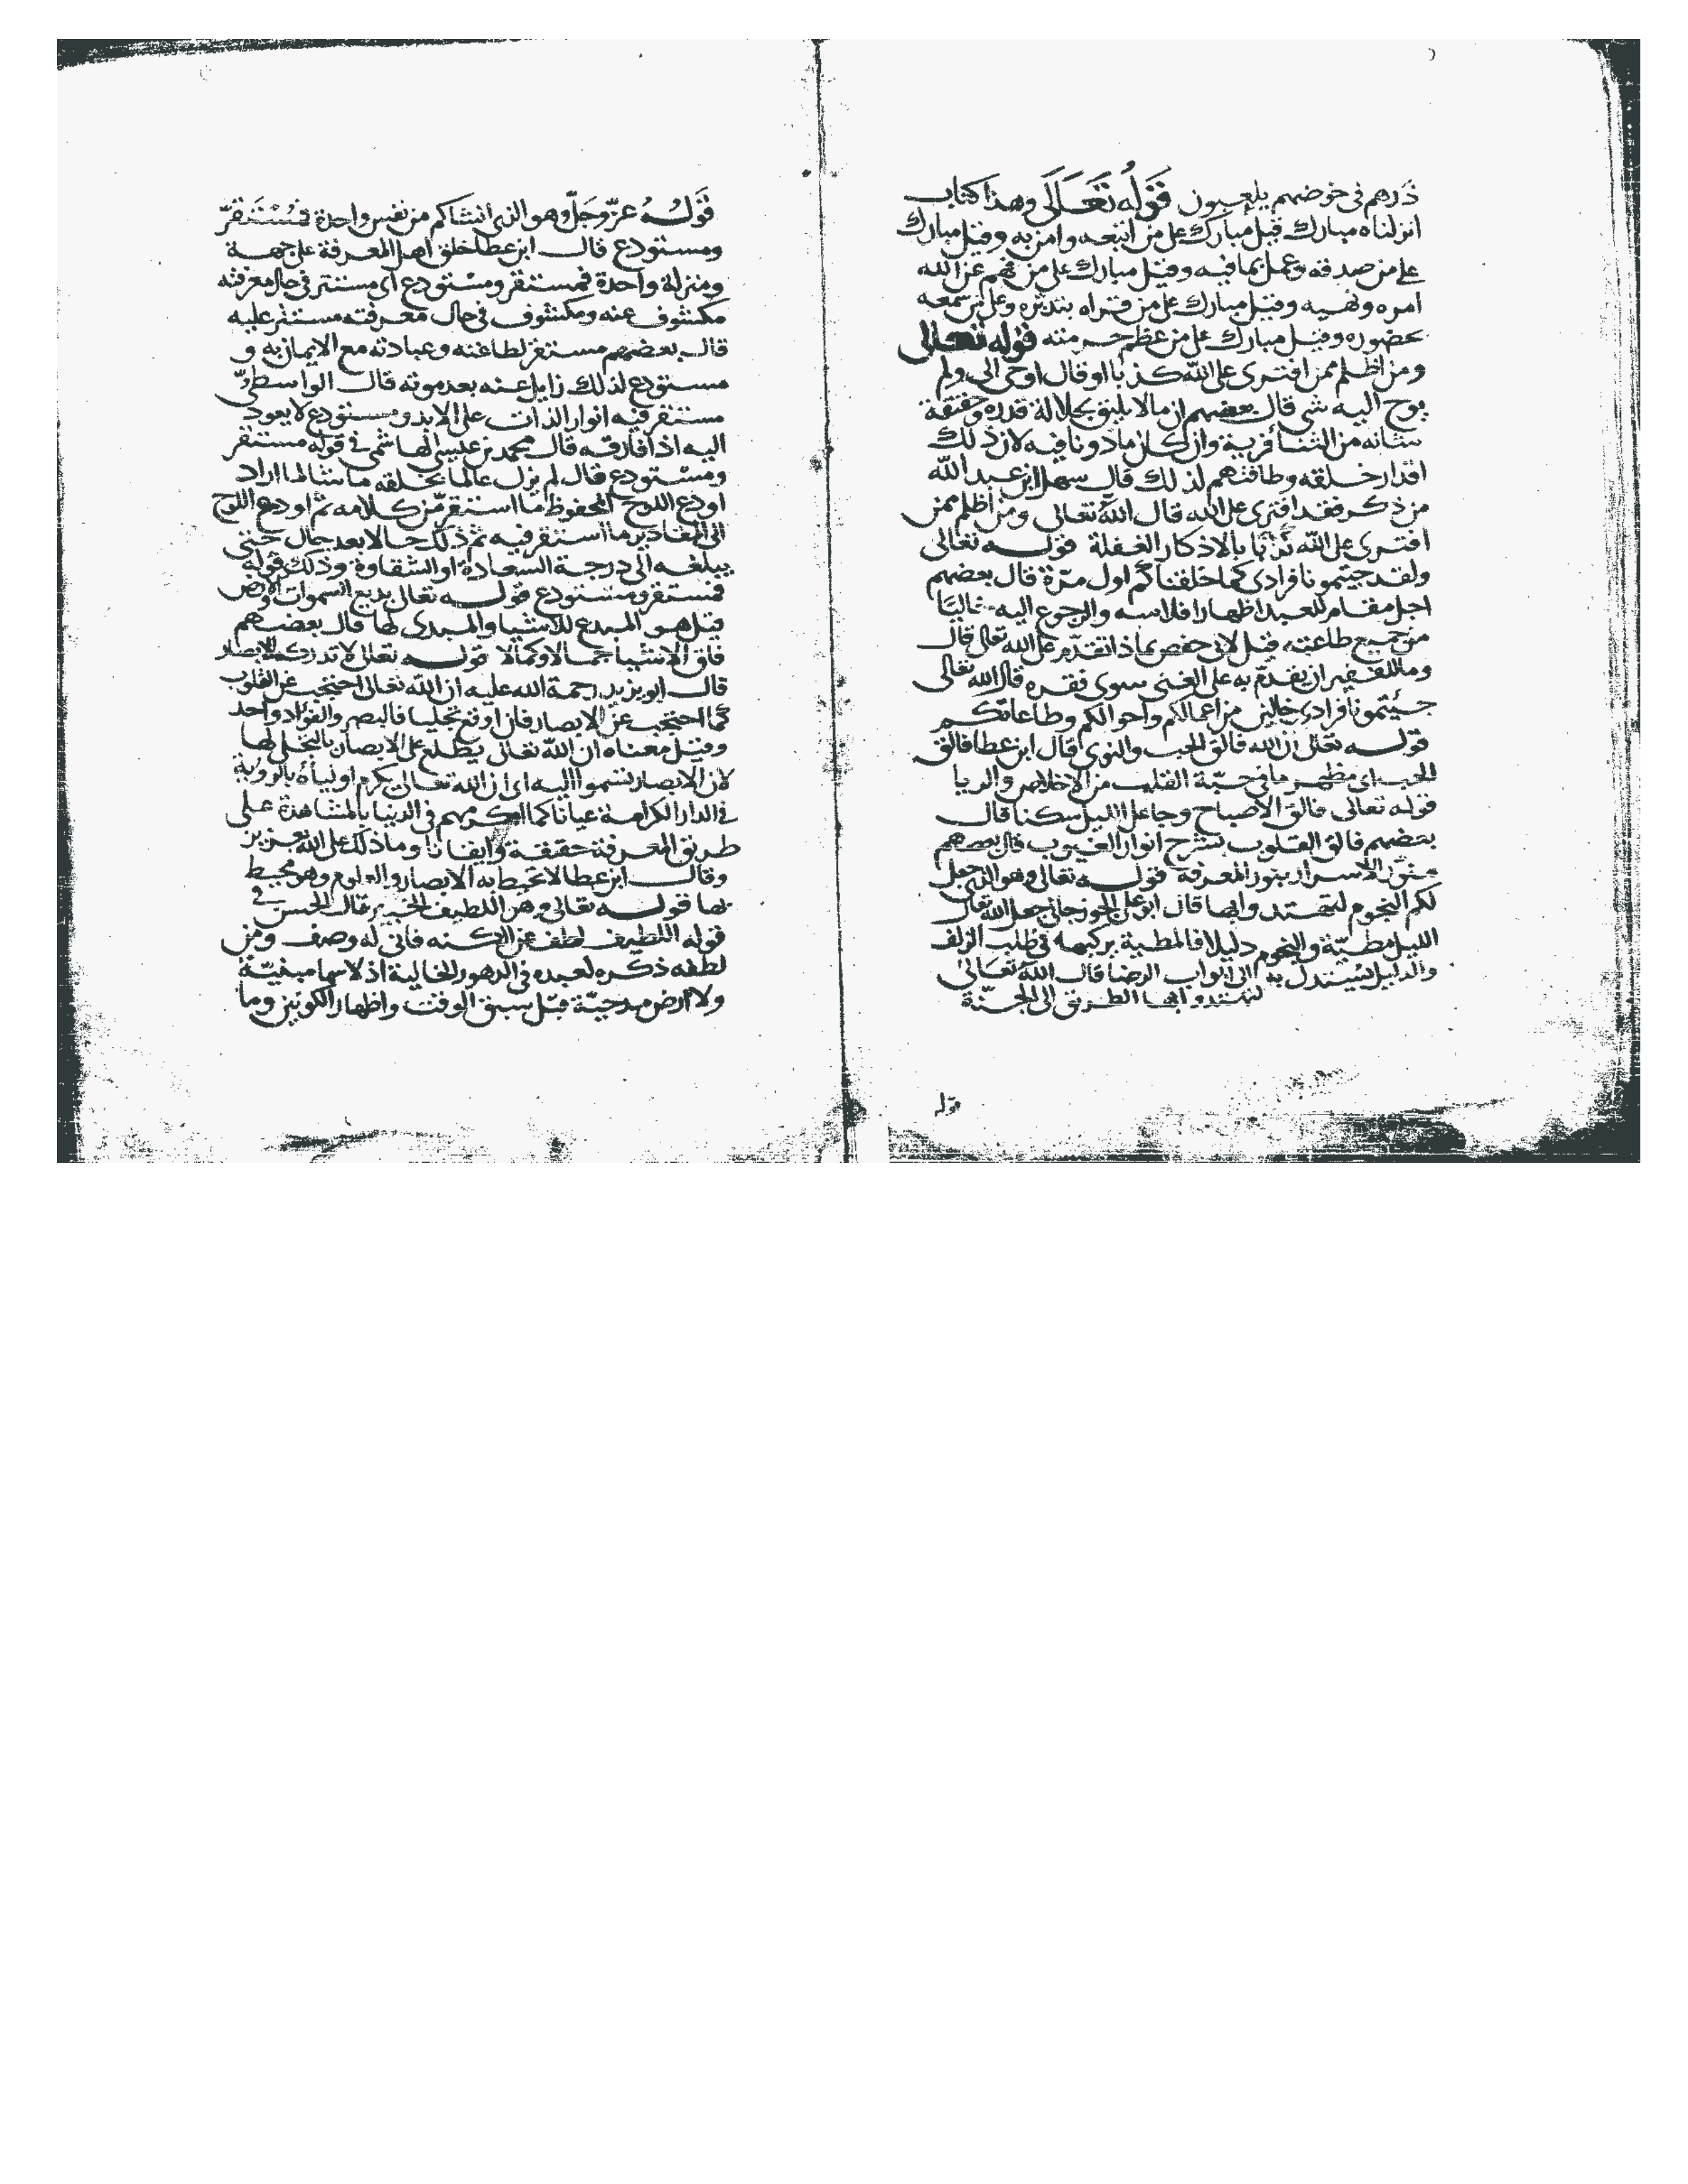 ذرهم في خوضهم يلعبون قوله تعالى وهذا كتاب
انزلناه مبارك قيل مبارك على من اتبعه وامن به وقيل مبارك
على من صدقه وعمل بما فيه وقيل مبارك على من فهم عن الله
امره ونهيه وقيل مبارك على من قراه بتدبره وعلى من سمعه
بحضوره وقيل مبارك على من عظم حرمته قوله تعالى
ومن اظلم ممن افترى على الله كذبا او قال اوحى الى ولم
يوح اليه شى قال بعضهم از مالا يليق بجلالة قدره وحقيقة
شانه من الثنا فرية وان كان مادونا فيه لان ذلك
اقدار خلقه وطاقتهم لذلك قال سهل ابن عبد الله
من ذكر فقد افترى على الله قال الله تعالى ومن اظلم ممن
افترى على الله كذبا بالاذكار الغفلة قوله تعالى
ولقد جيتمونا فرادى كما خلقناكم اول مرة قال بعضهم
اجل مقام للعبد اظهار افلاسه والرجوع اليه خاليا
من جميع طاعته قيل لابى حفص بماذا تقدم على الله تعالى قال
وما للفقير ان يقدم به على الغنى سوى فقره قال الله تعالى
جيتمونا فرادى خالين من اعمالكم واحوالكم وطاعاتكم
قوله تعالى ان الله فالق الحب والنوى قال ابن عطا فالق
الحب اى مظهر ما فى حبة القلب من الاخلاص والريا
قوله تعالى فالق الاصباح وجاعل الليل سكنا قال
بعضهم فالق القلوب بشرح انوار الغيوب قال بعضهم
منور الاسرار بنور المعرفة قوله تعالى وهو الذى جعل
لكم النجوم لتهتدوا بها قال ابو على الجوزجانى جعل الله تعالى
الليل مطية والنجوم دليلا فالمطية يركبها فى طلب الزلف
والدليل ليستدل به الى ابواب الرضا قال الله تعالى
لتهتدوا بها الطريق الى الجنة
قوله
قوله عز وجل وهو الذى انشاكم من نفس واحدة فمستقر
ومستودع قال ابن عطا خلق اهل المعرفة على جهة
ومنزلة واحدة فمستقر ومستودع اى مستتر فى حال معرفته
مكشوف عنه ومكشوف فى حال معرفته مستقر عليه
قال بعضهم مستقر لطاعته وعبادته مع الايمان به و
مستودع لذلك زايل عنه بعد موته قال الواسطى
مستقر فيه انوار الذات على الابد ومستودع لا يعود
اليه اذا فارقه قال محمد بن عيسى الهاشمى فى قوله مستقر
ومستودع قال لم يزل عالما بخلقه ما شا لما اراد
اودع اللوح المحفوظ ما استقر من كلامه ثم اودع اللوح
الى المقادير ما استقر فيه ثم ذلك حالا بعد حال حتى
يبلغه الى درجة السعادة او الشقاوة وذلك قوله
فمستقر ومستودع قوله تعالى بديع السموات والارض
قيل هو المبدع للاشيا والمبدى لها قال بعضهم
فاق الاشيا جمالا وكمالا قوله تعالى لا تدركه الابصار
قال ابو يزيد رحمة الله عليه ان الله تعالى احتجب عن القلوب
كما احتجب عن الابصار فان اوقع تجليا فالبصر والفواد واحد
وقيل معناه ان الله تعالى يطلع على الابصار بالتجلى لها
لان الابصار تسموا اليه اى ان الله تعالى يكرم اولياه بالروية
فى الدار الكرامة عيانا كما اكرمهم فى الدنيا بالمشاهدة على
طريق المعرفة حقيقة وايقانا وما ذلك على الله بعزيز
وقال ابن عطا لا تحيط به الابصار والعلوم وهو محيط
بها قوله تعالى وهو اللطيف الخبير قال الحسن فى
قوله اللطيف لطف عن الكنه فانى له وصف ومن
لطفه ذكره لعبده فى الدهور الخالية اذ لا سما مبنية
ولا ارض مدحية قبل سبق الوقت واظهار الكونين وما